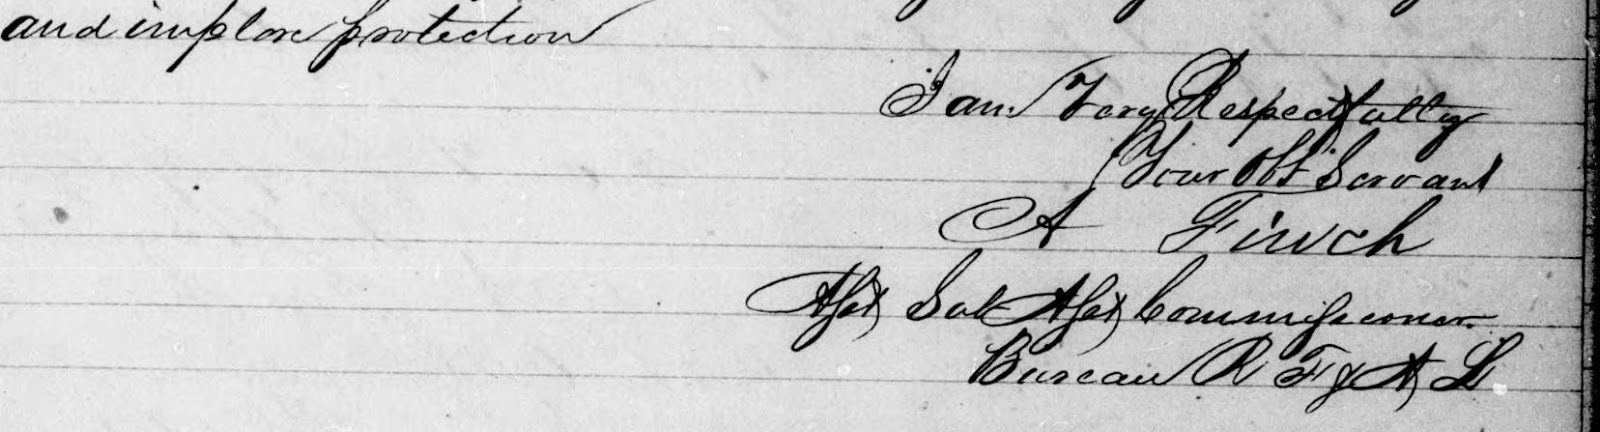 and implore protection
I am Very Respectfully
Your Obt Servant
A Finch
Asst Sub Asst Commissioner.
Bureau R F & A L